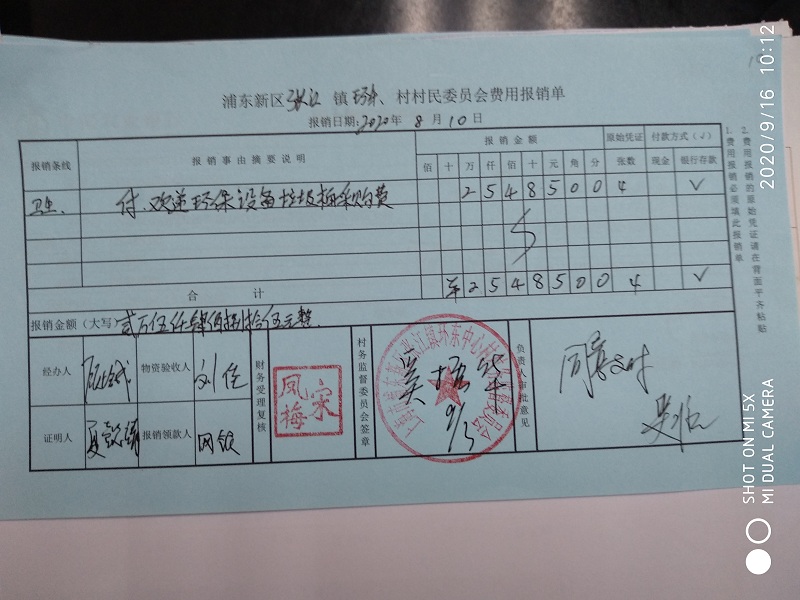 浦东新区张江镇环东村村民委员会费用报销单
报销日期:2020年 8月10日
报销条线 报销事由摘要说明 报销金额 原始凭证 付款方式(√)
佰 十 万 仟 佰 十 元 角 分 张数 现金 银行存款
卫生 付 环保设备垃圾桶采购费 2 5 4 8 5 0 0 4 √
合计 2 5 4 8 5 0 0 4 √
报销金额(大写) 贰万伍仟肆佰捌拾伍元整
经办人 物资验收人 刘佳 财务受理复核 宋凤梅 村务监督委员会签章 9/3 负责人审批意见 同意支付
证明人 报销领款人 网银
1.费用报销必须填此报销单
2.费用报销的原始凭证请在背面平齐粘贴
2020/9/16 10:12
SHOT ON MI 5X
MI DUAL CAMERA